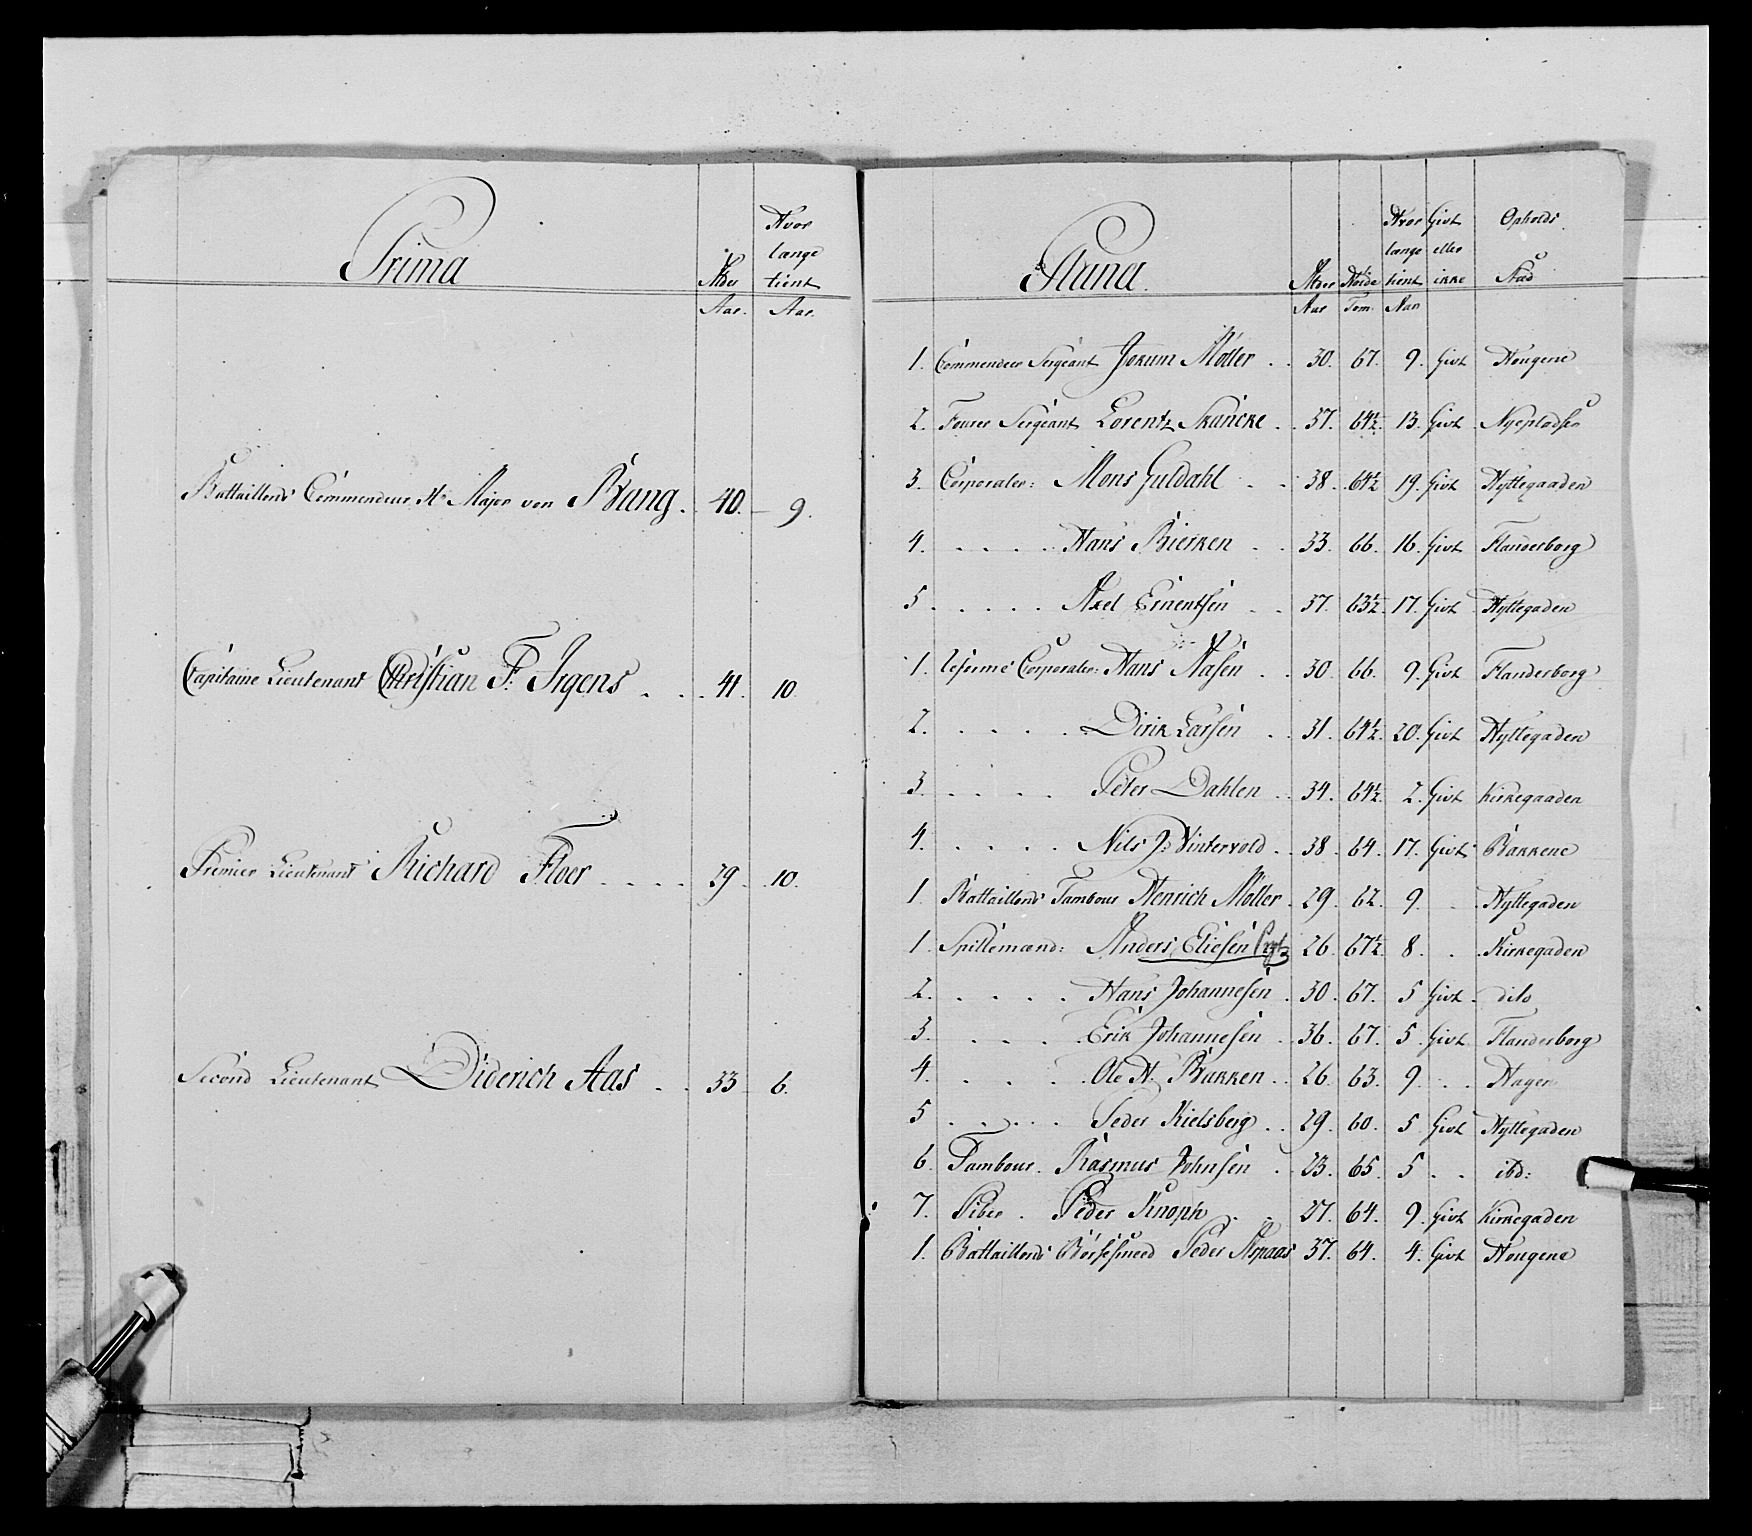 Prima
Alder
Aar.
Hvor
længe
tient
Aar.
Battaillons Commendeur Hr Major von Bang . 40. 9.
Capitaine Lieutenant Christian F: Irgens . . . 41. 10.
Premier Lieutenant Richard Floer . . . . 29 . 10.
Second Lieutenant Diderich Aas . . 33 6.
Plana.
Alder
Aar
Høide
Tom.
Hvor
længe
tient
Aar
Givt
eller
ikke
Opholds
Stæd
1. Commendeer Sergeant Jokum Møller . . 30. 67. 9. Givt Hougene
2. Fourer Sergeant Lorentz Skancke . . 37. 64½. 13. Givt Nyeplodsen
3. Corporaler: Mons Guldahl . . 38. 64½ 19. Givt Hyttegaaden
4. . . . . Hans Bierken . . 33. 66. 16. Givt Flanderborg
5 . . . . . Axel Erнentsen . . 37. 63½ 17. Givt Hyttegaden
1. Corporaler: Hans Aasen . . 30. 66. 9. Givt Flanderborg
2. . . . . . Dirik Larsen . . 31. 64½. 20. Givt Hyttegaden
3. . . . . Peter Dahlen . . 34. 64½. 2. Givt Kirkegaaden
4. . . . . . Nils J: Vintervold . . 38. 64. 17. Givt Bakkene
1. Battaillons Tambour Henrich Møller . 29. 62. 9. . Hyttegaden
1. Spillemænd: Anders Eliesen 26. 67½. 8. . Kirkegaden
2. . . . . Hans Johannesen . 30. 67. 5 Givt dito
3. . . . . Erik Johannesen . . 36. 67. 5. Givt Flanderborg
4. . . . . Ole H. Bakken . . 26. 63. 9. . . Hagen
5 . . . . . Peder Kielsberg . . 29. 60. 5 Givt Hyttegaden
6. Tambour. Rasmus Johnsen . . 23. 65. 5 . . ibd:
7. Piber . Peder Knoph . . 27. 64. 9. Givt Kirkegaden
1. Battaillons Børsesmed Peder Aspaas 37. 64. 4. Givt Hougene